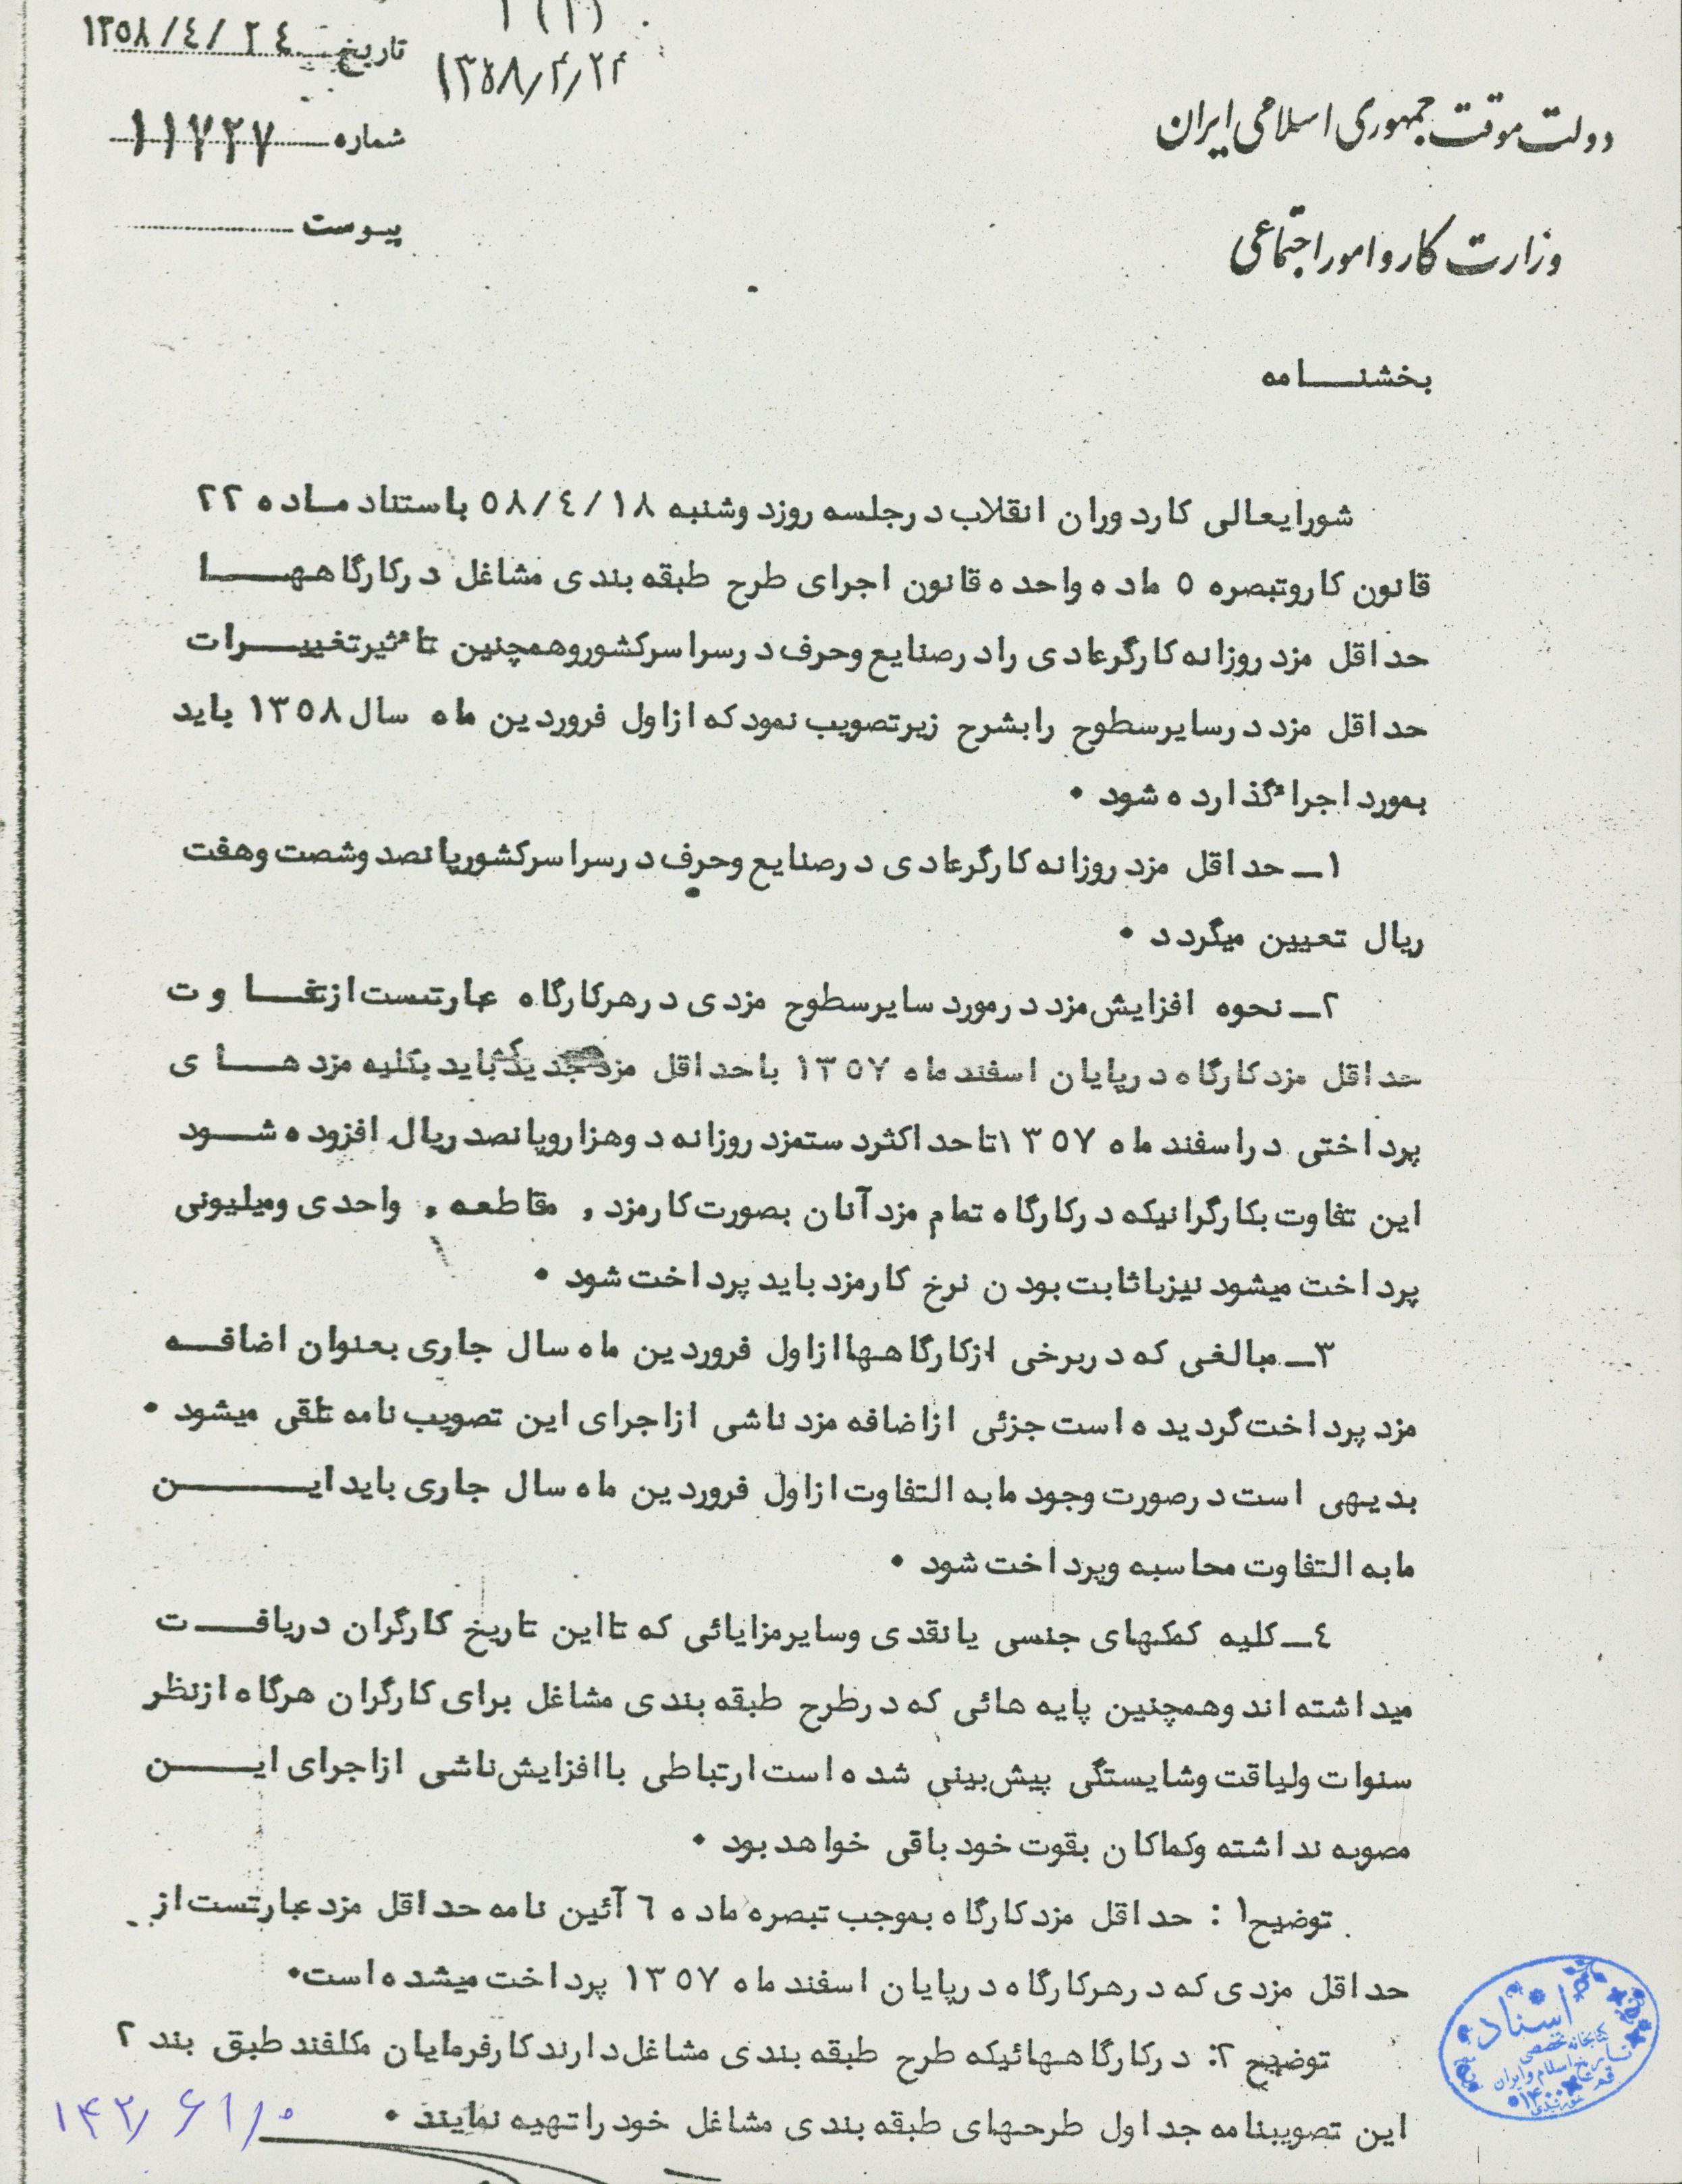 دولت موقت جمهوری اسلامی ایران
وزارت کار و امور اجتماعی
تاریخ ۱۳۵۸/٤/۲٤
۱۳۵۸/۴/۲۴
شماره ۱۱۷۲۷
پیوست
بخشنامه
شورایعالی کار دوران انقلاب در جلسه روز دوشنبه ۵۸/٤/۱۸ باستناد ماده ۲۲
قانون کار و تبصره ۵ ماده واحده قانون اجرای طرح طبقه بندی مشاغل در کارگاهها
حداقل مزد روزانه کارگر عادی را در صنایع و حرف در سراسر کشور و همچنین تاٴثیر تغییرات
حداقل مزد در سایر سطوح را بشرح زیر تصویب نمود که از اول فروردین ماه سال ۱۳۵۸ باید
بمورد اجراٴ گذارده شود ۰
۱ـ حداقل مزد روزانه کارگر عادی در صنایع و حرف در سراسر کشور پانصد و شصت و هفت
ریال تعیین میگردد ۰
۲ـ نحوه افزایش مزد در مورد سایر سطوح مزدی در هر کارگاه عبارتست از تفاوت
حداقل مزد کارگاه در پایان اسفند ماه ۱۳۵۷ با حداقل مزد جدید که باید بکلیه مزدهای
پرداختی در اسفند ماه ۱۳۵۷ تا حداکثر دستمزد روزانه دوهزار و پانصد ریال افزوده شود
این تفاوت بکارگرانیکه در کارگاه تمام مزد آنان بصورت کارمزد , مقاطعه , واحدی و میلیونی
پرداخت میشود نیز با ثابت بودن نرخ کارمزد باید پرداخت شود ۰
۳ـ مبالغی که در برخی از کارگاهها از اول فروردین ماه سال جاری بعنوان اضافه
مزد پرداخت گردیده است جزئی از اضافه مزد ناشی از اجرای این تصویب نامه تلقی میشود ۰
بدیهی است در صورت وجود مابه التفاوت از اول فروردین ماه سال جاری باید این
مابه التفاوت محاسبه و پرداخت شود ۰
٤ـ کلیه کمکهای جنسی یا نقدی و سایر مزایائی که تا این تاریخ کارگران دریافت
میداشته اند و همچنین پایه هائی که در طرح طبقه بندی مشاغل برای کارگران هرگاه از نظر
سنوات و لیاقت و شایستگی پیش بینی شده است ارتباطی با افزایش ناشی از اجرای این
مصوبه نداشته و کماکان بقوت خود باقی خواهد بود ۰
توضیح ۱ : حداقل مزد کارگاه بموجب تبصره ماده ٦ آئین نامه حداقل مزد عبارتست از
حداقل مزدی که در هر کارگاه در پایان اسفند ماه ۱۳۵۷ پرداخت میشده است۰
توضیح ۲: در کارگاههائیکه طرح طبقه بندی مشاغل دارند کارفرمایان مکلفند طبق بند ۲
این تصویبنامه جداول طرحهای طبقه بندی مشاغل خود را تهیه نمایند ۰
اسناد
کتابخانه تخصصی
تاریخ اسلام و ایران
قم